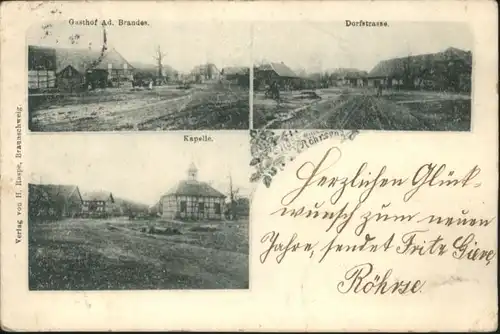 Gasthof Ad. Brandes.
Dorfstrasse.
Kapelle.
Verlag von H. Raspe, Braunschweig.
Herzlichen Glück-
wunsch zum neuen
Jahre, sendet Fritz
Röhrse.